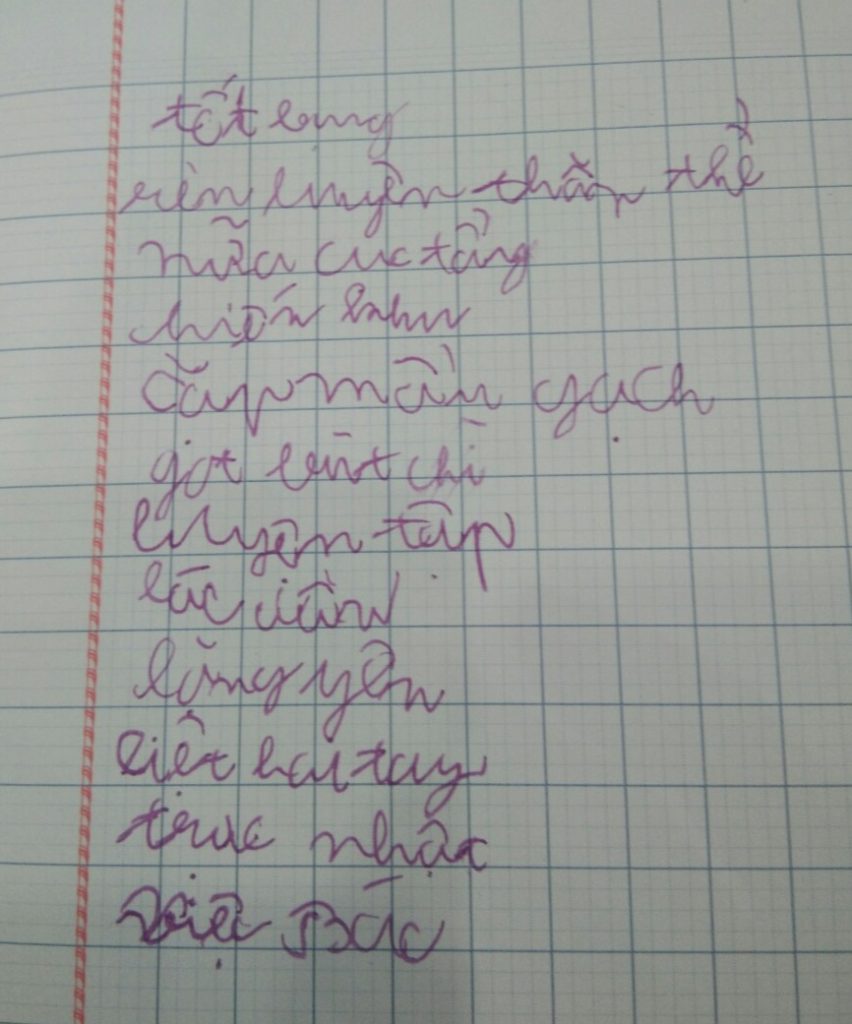 tốt bụng
rèn luyện thân thể
nữa cục tẩy
hiến
cặp mần gạch
gọt bút chì
luyện tập
lác
lặng yên
liệt hai tay
trực nhật
Việt Bắc